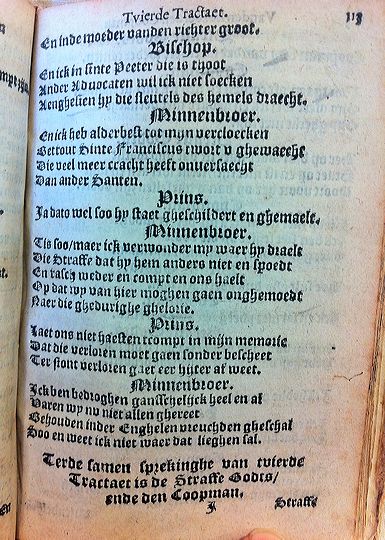 Tvierde Tractaet. 113
En inde moeder vanden richter groot.
Bisschop.
En ick in sinte Peeter die is tyoot
Ander Advocaten wil ick niet soecken
Aenghesien hy die sleutels des hemels draecht.
Minnenbroer.
En ick heb alderbest tot mijn vercloecken
Betrout Sinte Franciscus twort v ghewaecht
Die veel meer cracht heeft onuersaecht
Dan ander Santen.
Prins.
Ja dato wel soo hy staet gheschildert en ghemaelt.
Minnenbroer.
Tis soo/maer ick verwonder my waer hy draelt
Die Straffe dat hy hem anders niet en spoedt
En rasch weder en compt en ons haelt
Op dat wy van hier moghen gaen onghemoedt
Naer die ghedurighe ghelorie.
Prins.
Laet ons niet haesten tcompt in mijn memorie
Dat die verloren moet gaen sonder bescheet
Ter stont verloren gaet eer hijter af weet.
Minnenbroer.
Ick ben bedroghen gansschelijck heel en al
Waren wy nv niet allen ghereet
Behouden inder Enghelen vreuchden gheschal
Soo en weet ick niet waer dat lieghen sal.
Terde samen sprekinghe van tvierde
Tractaet is de Straffe Godts/
ende den Coopman.
Straffe